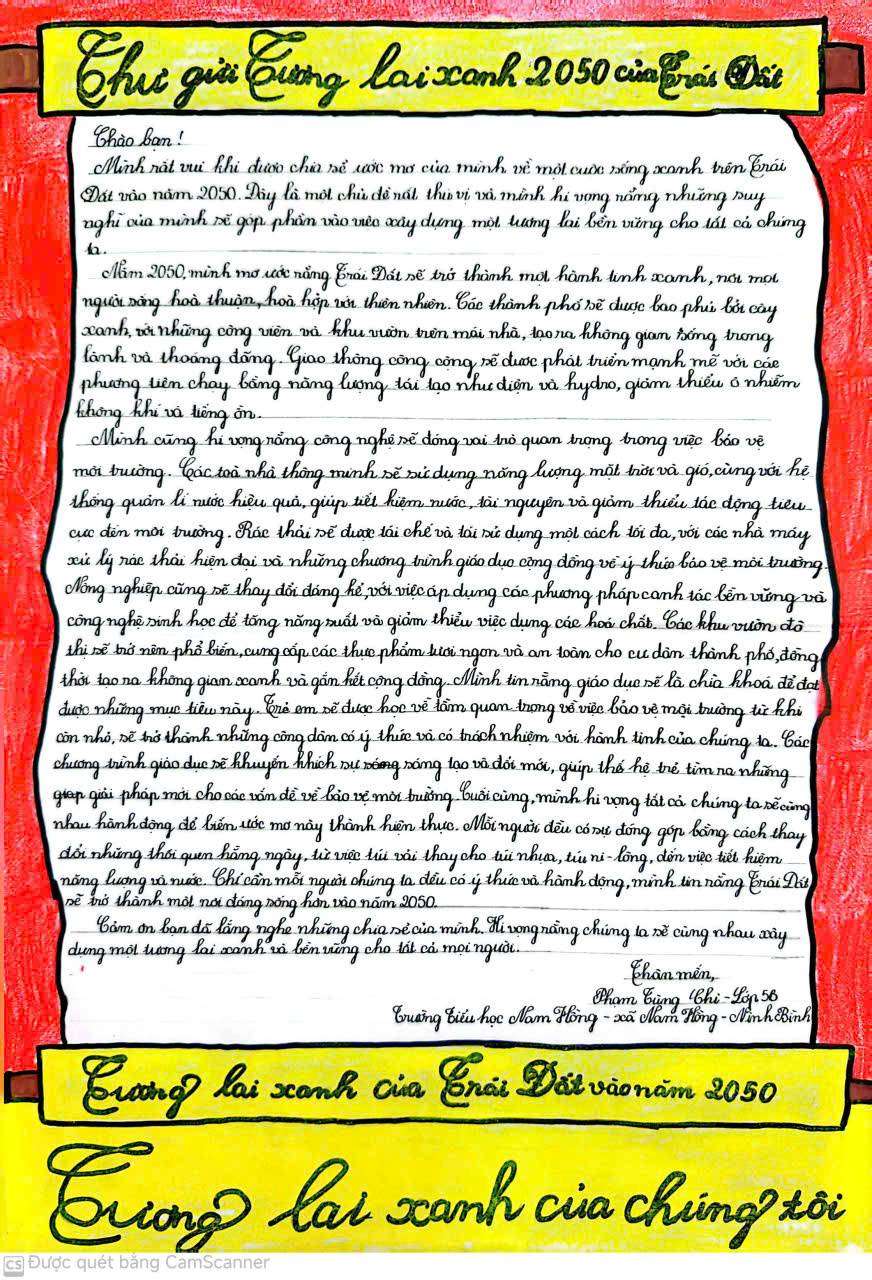 Thư gửi Tương lai xanh 2050 của Trái Đất
Chào bạn!
Mình rất vui khi được chia sẻ ước mơ của mình về một cuộc sống xanh trên Trái
Đất vào năm 2050. Đây là một chủ đề rất thú vị và mình hi vọng rằng những suy
nghĩ của mình sẽ góp phần vào việc xây dựng một tương lai bền vững cho tất cả chúng
ta.
Năm 2050, mình mơ ước rằng Trái Đất sẽ trở thành một hành tinh xanh, nơi mọi
người sống hoà thuận, hoà hợp với thiên nhiên. Các thành phố sẽ được bao phủ bởi cây
xanh, với những công viên và khu vườn trên mái nhà, tạo ra không gian sống trong
lành và thoáng đãng. Giao thông công cộng sẽ được phát triển mạnh mẽ với các
phương tiện chạy bằng năng lượng tái tạo như điện và hydro, giảm thiểu ô nhiễm
không khí và tiếng ồn.
Mình cũng hi vọng rằng công nghệ sẽ đóng vai trò quan trọng trong việc bảo vệ
môi trường. Các toà nhà thông minh sẽ sử dụng năng lượng mặt trời và gió, cùng với hệ
thống quản lí nước hiệu quả, giúp tiết kiệm nước, tài nguyên và giảm thiểu tác động tiêu
cực đến môi trường. Rác thải sẽ được tái chế và tái sử dụng một cách tối đa, với các nhà máy
xử lý rác thải hiện đại và những chương trình giáo dục cộng đồng về ý thức bảo vệ môi trường.
Nông nghiệp cũng sẽ thay đổi đáng kể, với việc áp dụng các phương pháp canh tác bền vững và
công nghệ sinh học để tăng năng suất và giảm thiểu việc dụng các hoá chất. Các khu vườn đô
thị sẽ trở nên phổ biến, cung cấp các thực phẩm tươi ngon và an toàn cho cư dân thành phố, đồng
thời tạo ra không gian xanh và gắn kết cộng đồng. Mình tin rằng giáo dục sẽ là chìa khoá để đạt
được những mục tiêu này. Trẻ em sẽ được học về tầm quan trọng về việc bảo vệ môi trường từ khi
còn nhỏ, sẽ trở thành những công dân có ý thức và có trách nhiệm với hành tinh của chúng ta. Các
chương trình giáo dục sẽ khuyến khích sự sáng sáng tạo và đổi mới, giúp thế hệ trẻ tìm ra những
giap giải pháp mới cho các vấn đề về bảo vệ môi trường. Cuối cùng, mình hi vọng tất cả chúng ta sẽ cùng
nhau hành động để biến ước mơ này thành hiện thực. Mỗi người đều có sự đóng góp bằng cách thay
đổi những thói quen hằng ngày, từ việc túi vải thay cho túi nhựa, túi ni-lông, đến việc tiết kiệm
năng lượng và nước. Chỉ cần mỗi người chúng ta đều có ý thức và hành động, mình tin rằng Trái Đất
sẽ trở thành một nơi đáng sống hơn vào năm 2050.
Cảm ơn bạn đã lắng nghe những chia sẻ của mình. Hi vọng rằng chúng ta sẽ cùng nhau xây
dựng một tương lai xanh và bền vững cho tất cả mọi người.
Thân mến,
Phạm Tùng Chi - Lớp 5B
Trường Tiểu học Nam Hồng - xã Nam Hồng - Ninh Bình
Tương lai xanh của Trái Đất vào năm 2050
Tương lai xanh của chúng tôi
CS Được quét bằng CamScanner